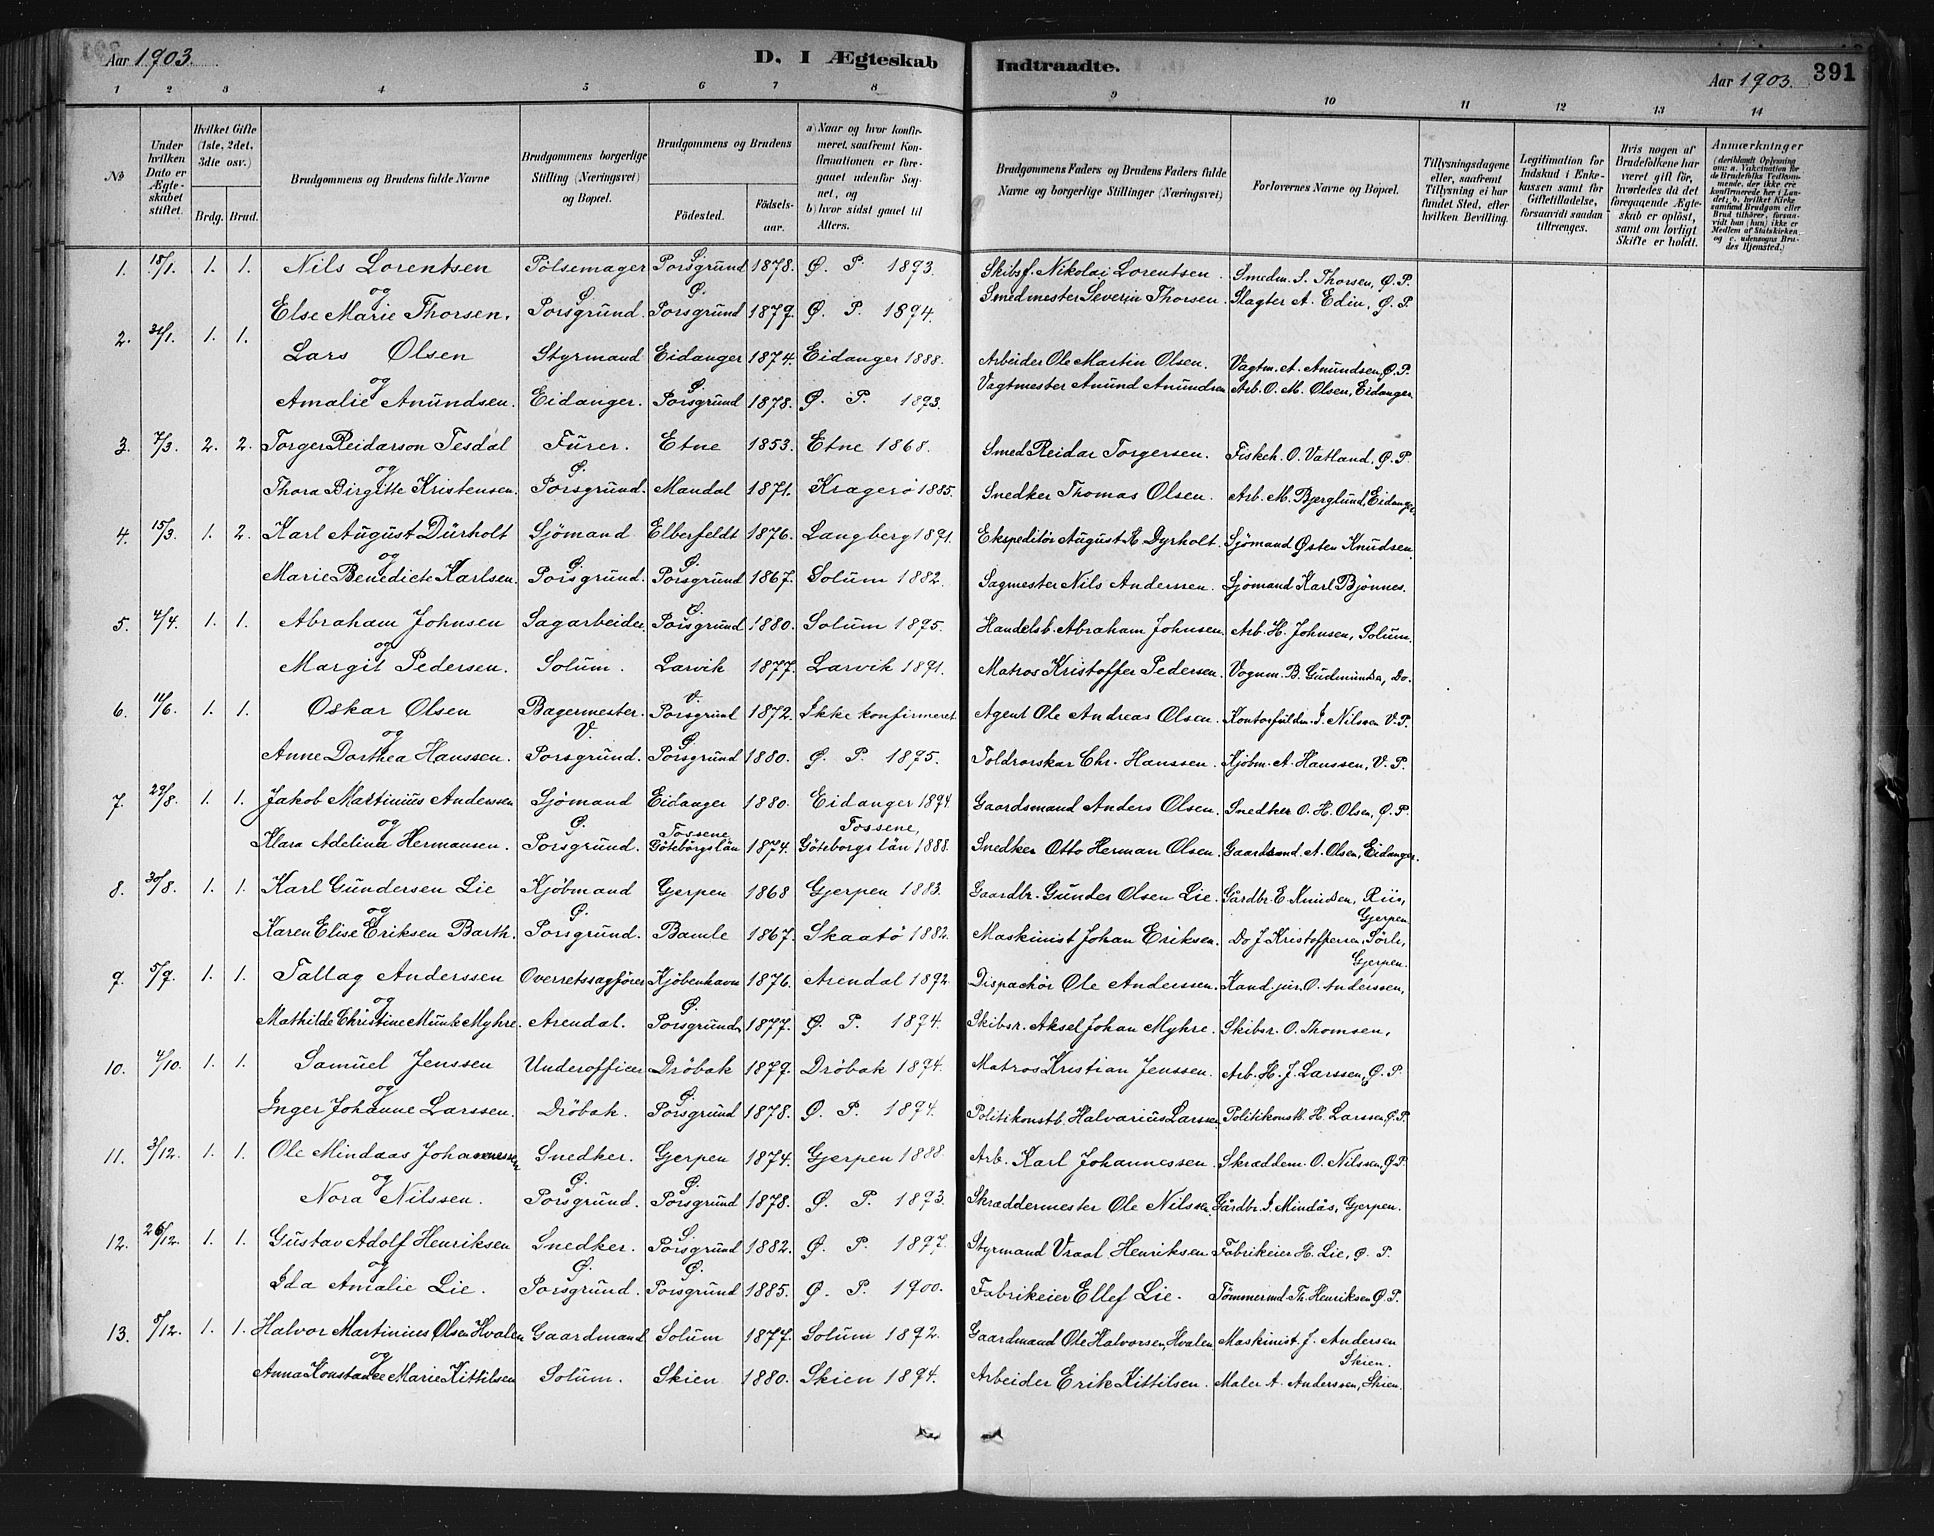 Aar 1903. D. I Ægteskab Indtraadte. Aar 1903. 391
1 2 3 4 5 6 7 8 9 10 11 12 13 14
No
Under hvilken Dato er Ægteskabet stiftet.
Hvilket Gifte (1ste, 2det, 3die osv.)
Brdg. Brud.
Brudgommens og Brudens fulde Navne
Brudgommens borgerlige Stilling (Næringsvei) og Bopæl.
Brudgommens og Brudens
Födested. Födselsaar.
a) Naar og hvor konfirmeret, saafremt Konfirmationen er foregaaet udenfor Sognet, og
b) hvor sidst gaaet til Alters.
Brudgommens Faders og Brudens Faders fulde Navne og borgerlige Stillinger (Næringsvei)
Forlovernes Navne og Bopæl.
Tillysningsdagene eller, saafremt Tillysning ei har fundet Sted, efter hvilken Bevilling.
Legitimation for Indskud i Enkekassen samt for Giftetilladelse, forsaavidt saadan tiltrænges.
Hvis nogen af Brudefolkene har været gift för, hvorledes da det foregaaende Ægteskab er oplöst, samt om lovligt Skifte er holdt.
Anmærkninger
(deriblandt Oplysning om: a. Vakcination for de Brudefolks Vedkommende, der ikke ere konfirmerede her i Landet; b. hvilket Kirkesamfund Brudgom eller Brud tilhörer, forsaavidt han (hun) ikke er Medlem af Statskirken og c. udensogns Brudes Hjemsted.)
1. 15/1. 1. 1. Nils Lorentsen Pölsemager Ø. Porsgrund 1878. Ø. P. 1893. Skibsf. Nikolai Lorentsen. Smedm. S. Thorsen, Ø.P.
og Else Marie Thorsen. Ø. Porsgrund. Ø. Porsgrund 1879. Ø. P. 1894. Smedmester Severin Thorsen. Slagter A. Edin, Ø.P
2. 31/1. 1. 1. Lars Olsen Styrmand Eidanger 1874. Eidanger 1888. Arbeider Ole Martin Olsen. Vagtm. A. Anundsen, Ø.P.
og Amalie Anundsen. Eidanger. Ø. Porsgrund 1878. Ø. P. 1893. Vagtmester Anund Anundsen Arb. O. M. Olsen, Eidanger
3. 7/3. 2. 2. Torger Reidarson Tesdal Furer. Etne 1853. Etne 1868. Smed Reidar Torgersen. Fiskeh. O. Vatland, Ø.P.
og Thora Birgitte Kristensen. Ø. Porsgrund. Mandal 1871. Kragerö 1885. Snedker Thomas Olsen. Arb. M. Bjerglund, Eidanger,
4. 15/3. 1. 2. Karl August Dürholt Sjömand Elberfeldt 1876. Langberg 1891. Ekspeditör August K Dyrholt. Sjömand Østen Knudsen.
og Marie Benedicte Karlsen. Ø. Porsgrund. Ø. Porsgrund 1867. Solum 1882. Sagmester Nils Anderssen. Sjömand Karl Bjønnes.
5. 4/4. 1. 1. Abraham Johnsen Sagarbeider Ø. Porsgrund 1880. Solum 1895. Handelsb. Abraham Johnsen. Arb. H. Johnsen, Solum.
og Margit Pedersen. Solum. Larvik 1877. Larvik 1891. Matros Kristoffer Pedersen. Vognm. B. Gudmunds, Do.
6. 11/6. 1. 1. Oskar Olsen Bagermester. V. Porsgrund 1872. Ikke konfirmeret. Agent Ole Andreas Olsen. Kontorfuldm. J. Nilssen V.P.
og Anne Dorthea Hanssen. V. Porsgrund. Ø. Porsgrund 1880. Ø. P. 1895. Toldrorskar Chr. Hanssen. Kjöbm. A. Hanssen, V.P.
7. 29/8. 1. 1. Jakob Martinius Anderssen Sjömand Eidanger 1880. Eidanger 1894. Gaardsmand Anders Olsen. Snedker O. H. Olsen, Ø.P.
og Klara Adelina Hermansen. Ø. Porsgrund. Tossene, Göteborgs län 1874. Tossene, Göteborgs län 1888. Snedker Otto Herman Olsen. Gaardsmd. A. Olsen, Eidanger.
8. 30/8. 1. 1. Karl Gundersen Lie Kjöbmand Gjerpen 1868 Gjerpen 1883. Gaardbr. Gunder Olsen Lie. Gårdbr. E. Knudsen, Riis, Gjerpen
og Karen Elise Eriksen Barth. Ø. Porsgrund. Bamle 1867. Skaatö 1882. Maskinist Johan Eriksen. Do J. Kristoffersen, Sörli, Gjerpen.
9. 5/9. 1. 1. Tallag Anderssen Overretssagförer Kjöbenhavn 1876. Arendal 1892. Dispachör Ole Anderssen. Kand. jur. O. Anderssen,
og Mathilde Christine Munk Myhre. Arendal. Ø. Porsgrund 1877. Ø. P. 1894. Skibsr. Aksel Johan Myhre. Skibsr. O. Thomsen,
10. 4/10. 1. 1. Samuel Jenssen Underofficer Dröbak 1879. Dröbak 1894. Matros Kristian Jenssen. Arb. H. J. Larssen, Ø.P.
og Inger Johanne Larssen. Dröbak. Ø. Porsgrund 1878. Ø. P. 1894. Politikonstb. Halvarius Larssen Politikonstb. H. Larssen, Ø.P.
11. 3/12. 1. 1. Ole Mindaas Johannessen Snedker. Gjerpen 1874. Gjerpen 1888. Arb. Karl Johannessen. Skræddem. O. Nilssen, Ø.P.
og Nora Nilssen. Ø. Porsgrund. Ø. Porsgrund 1878. Ø. P. 1893. Skræddermester Ole Nilssen. Gårdbr. J. Mindås, Gjerpen.
12. 26/12. 1. 1. Gustav Adolf Henriksen Snedker. Ø. Porsgrund 1882. Ø. P. 1897. Styrmand Vraal Henriksen Fabrikeier H. Lie, Ø. P.
og Ida Amalie Lie. Ø. Porsgrund. Ø. Porsgrund 1885. Ø. P. 1900. Fabrikeier Ellef Lie. Tömmermd. Th. Henriksen Ø.P.
13. 5/12. 1. 1. Halvor Martinius Olsen Hvalen Gaardmand Solum 1877. Solum 1892. Gaardmand Ole Halvorsen, Hvalen Maskinist. J. Andersen Skien.
og Anna Konstance Marie Kittilsen Solum. Skien 1880. Skien 1894. Arbeider Erik Kittilsen. Maler A. Anderssen, Skien.